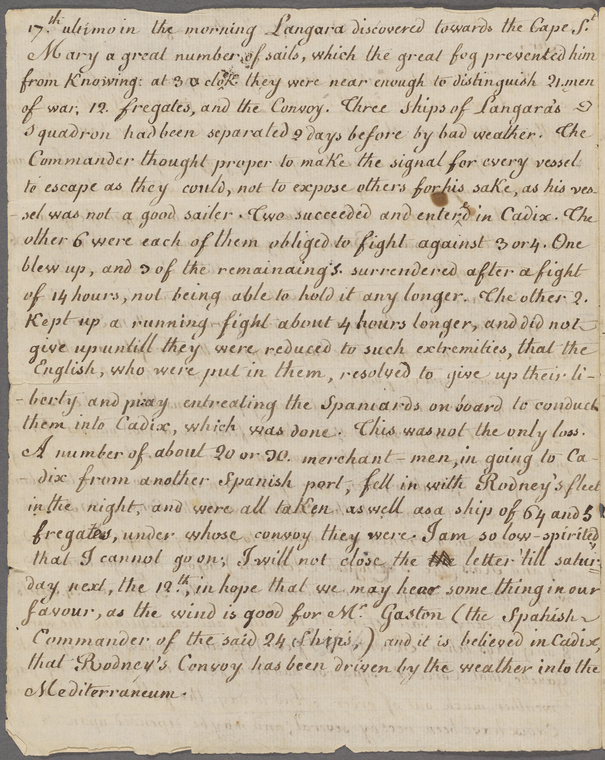 17.th ultimo in the morning Langara discovered towards the Cape St.
Mary a great number of sails, which the great fog prevented him
from Knowing: at 3 o clok they were near enough to distinguish 21. men
of war, 12. fregates, and the Convoy. Three ships of Langara's
squadron had been separated 2 days before by bad weather. The
Commander thought proper to make the signal for every vessel
to escape as they could, not to expose others for his sake, as his ves-
sel was not a good sailer. Two succeeded and enter'd in Cadix. The
other 6 were each of them obliged to fight against 3 or 4. One
blew up, and 3 of the remainaing 5. surrendered after a fight
of 14 hours, not being able to hold it any longer. The other 2.
Kept up a running-fight about 4 hours longer, and did not
give up untill they were reduced to such extremities, that the
English, who were put in them, resolved to give up their li-
-berty and pray entreating the Spaniards on board to conduct
them into Cadix, which was done. This was not the only loss.
A number of about 20 or 30. merchant-men, in going to Ca-
-dix from another Spanish port, fell in with Rodney's fleet
in the night, and were all taken as well as a ship of 64 and 5
fregates, under whose convoy they were. I am so low-spirited
that I cannot go on; I will not close the the letter 'till satur-
day next, the 12.th, in hope that we may hear some thing in our
favour, as the wind is good for Mr. Gaston (the Spahish
Commander of the said 24 ships,) and it is believed in Cadix,
that Rodney's Convoy has been driven by the weather into the
Mediterraneum.